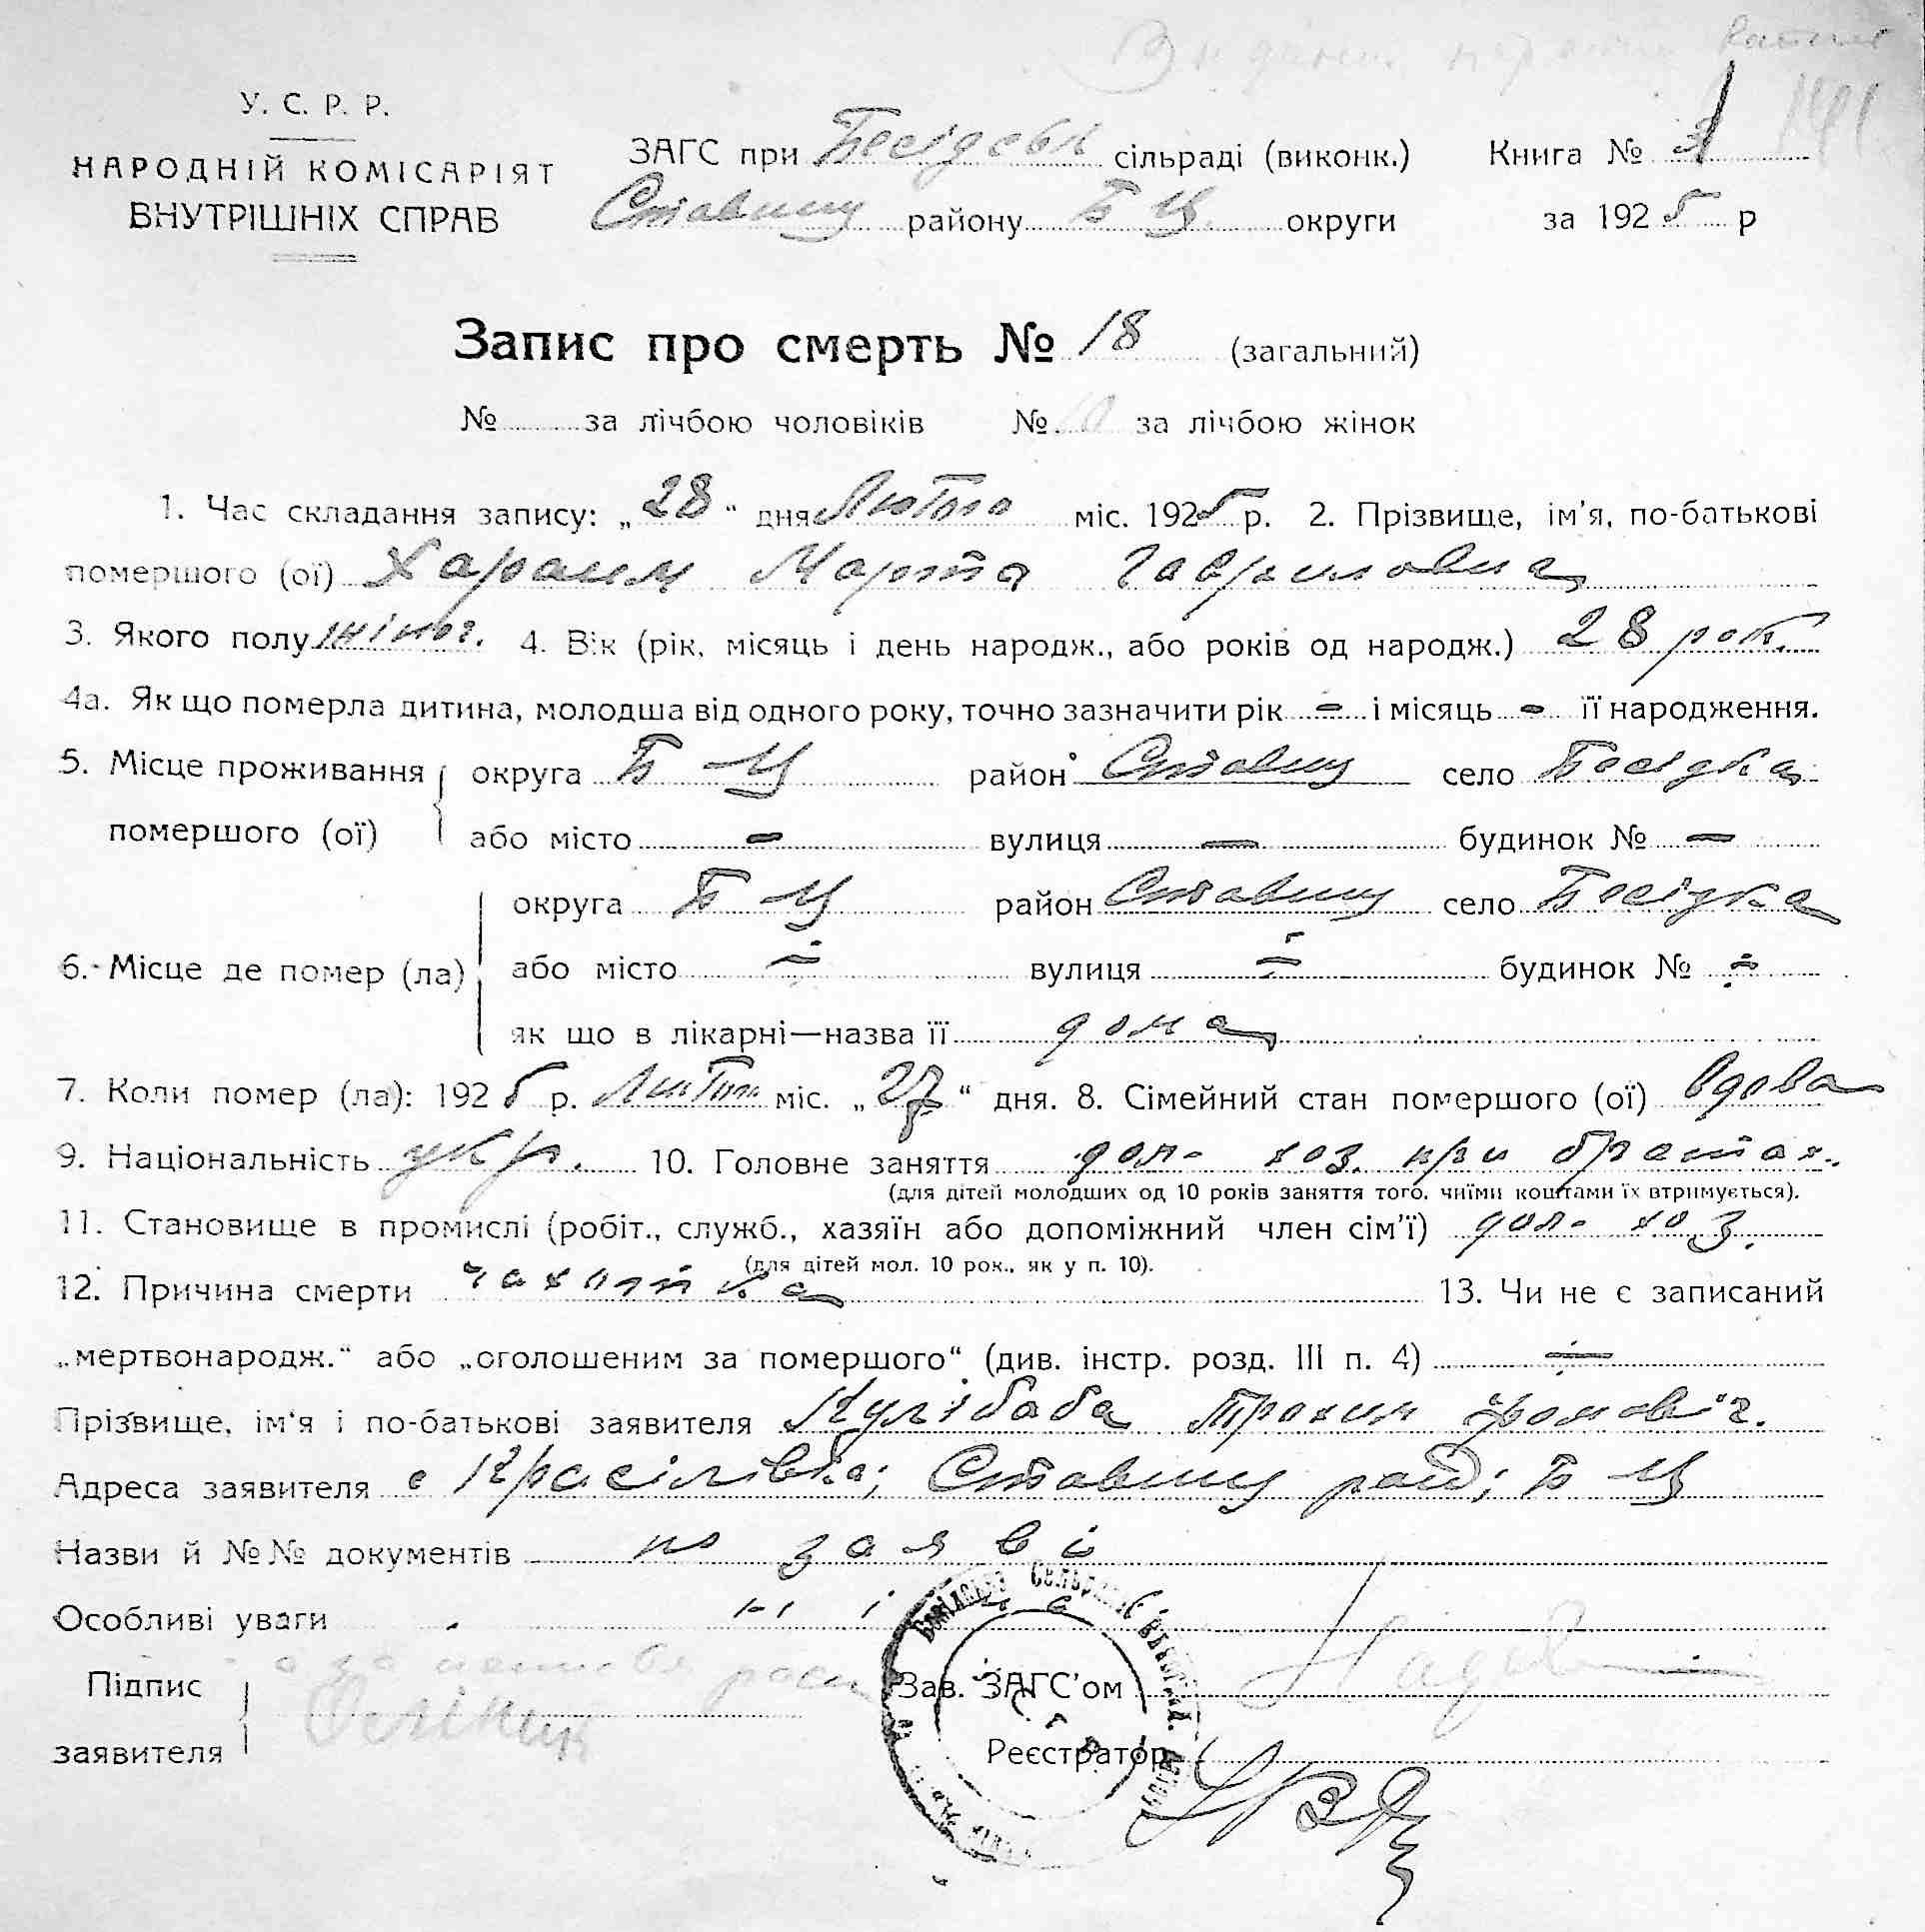 У. С. Р. Р.
НАРОДНІЙ КОМІСАРІЯТ
ВНУТРІШНІХ СПРАВ
ЗАГС при Бесідськ сільраді (виконк.) Книга №
Ставищ району Б Ц. округи за 1925 р
Запис про смерть № 18 (загальний)
№ за лічбою чоловіків № за лічбою жінок
1. Час складання запису: „28“ дня Лютого міс. 1925 р. 2. Прізвище, ім'я, по-батькові
помершого (ої) Марта Гавриловна
3. Якого полу жіноч. 4. Вік (рік, місяць і день народж., або років од народж.) 28 рок.
4а. Як що померла дитина, молодша від одного року, точно зазначити рік - і місяць - її народження.
5. Місце проживання округа Б Ц район Ставищ село Бесідка
помершого (ої) або місто - вулиця - будинок № -
6. Місце де помер (ла) округа Б Ц район Ставищ село Бесідка
або місто вулиця будинок №
як що в лікарні—назва її дома
7. Коли помер (ла): 1925 р. Лютого міс. „27“ дня. 8. Сімейний стан помершого (ої) вдова
9. Національність укр. 10. Головне заняття дом- хоз. при братах.
(для дітей молодших од 10 років заняття того, чиїми коштами їх втримується).
11. Становище в промислі (робіт., служб., хазяїн або допоміжний член сім'ї) дом- хоз.
(для дітей мол. 10 рок., як у п. 10).
12. Причина смерти чахотка 13. Чи не є записаний
„мертвонародж.“ або „оголошеним за помершого“ (див. інстр. розд. III п. 4)
Прізвище, ім'я і по-батькові заявителя Кулібаба Трохим Фомовіч.
Адреса заявителя с Красілівка; Ставищ рай; Б Ц
Назви й №№ документів по заяві
Особливі уваги німа
Підпис
заявителя
Зав. ЗАГС'ом
Реєстратор